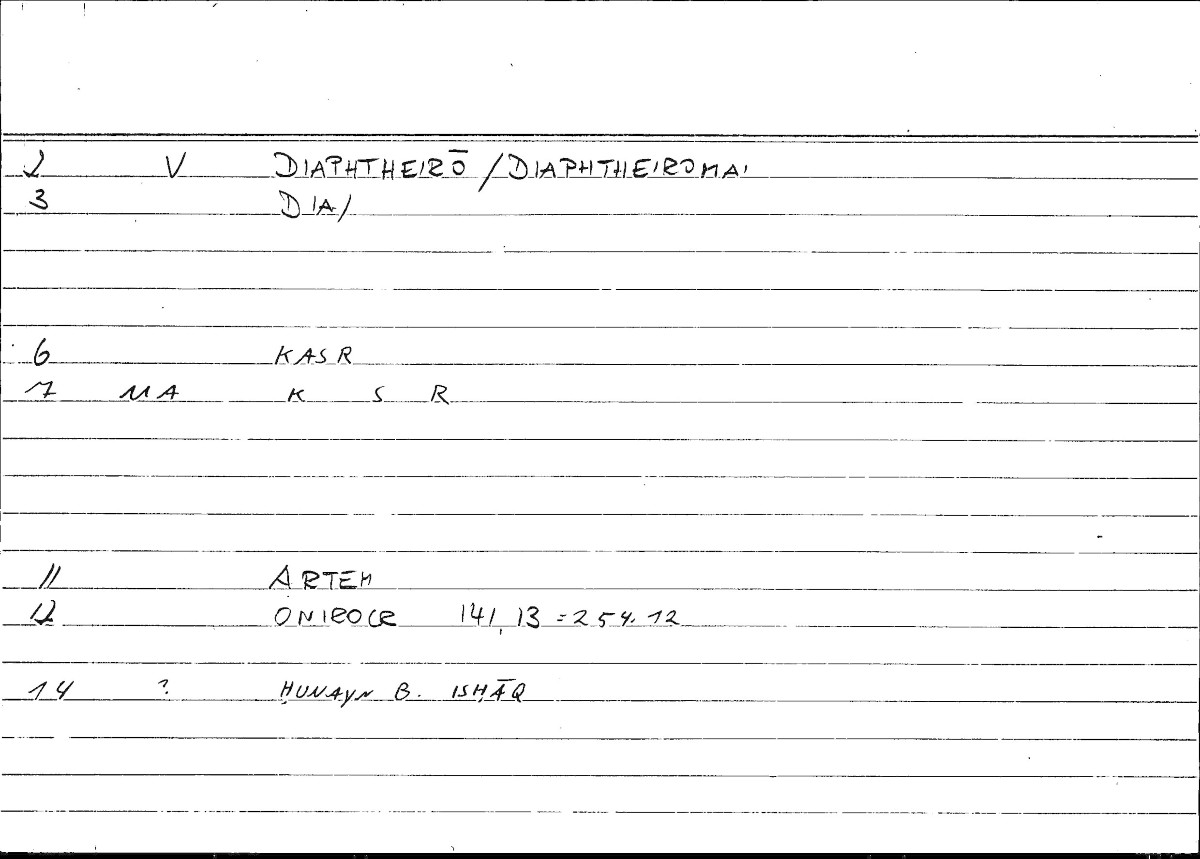 2 V DIAPHTHEIRŌ / DIAPHTHEIROMAI
3 DIA/
6 KASR
7 MA K S R
11 ARTEM
12 ONIROCR 141, 13 = 254. 12
14 ? ḤUNAYN B. ISḤĀQ